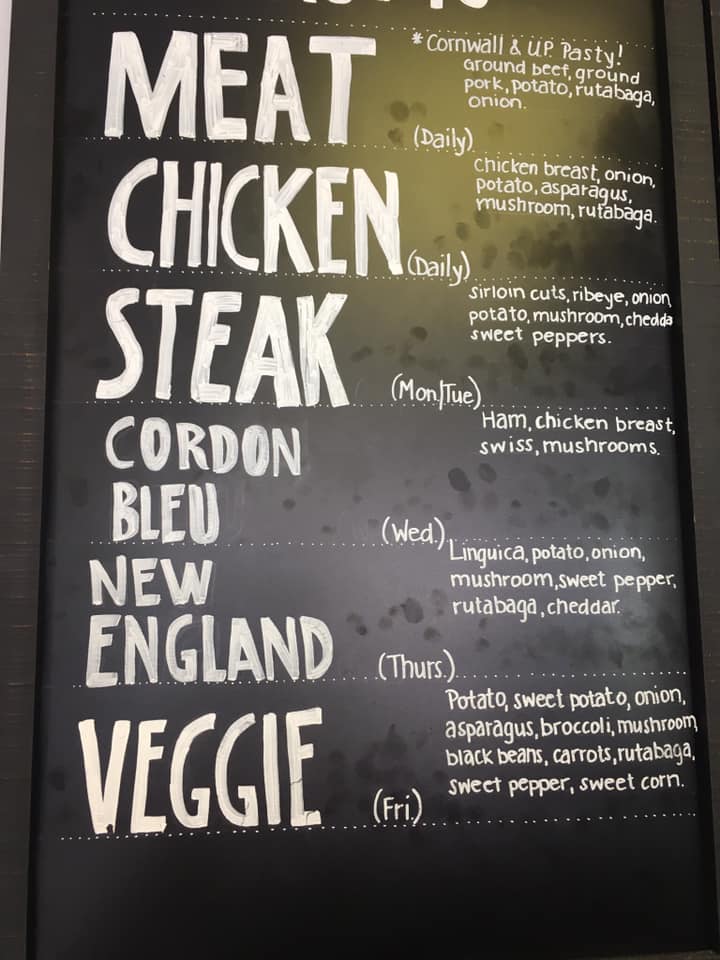 MEAT
*Cornwall & U.P. Pasty!
ground beef, ground
pork, potato, rutabaga,
onion.
(Daily)
CHICKEN
chicken breast, onion,
potato, asparagus,
mushroom, rutabaga.
(Daily)
STEAK
sirloin cuts, ribeye, onion
potato, mushroom, chedda
sweet peppers.
(Mon/Tue)
CORDON
BLEU
Ham, chicken breast,
swiss, mushrooms.
(Wed.)
NEW
ENGLAND
Linguica, potato, onion,
mushroom, sweet pepper,
rutabaga, cheddar.
(Thurs.)
VEGGIE
Potato, sweet potato, onion,
asparagus, broccoli, mushroom
black beans, carrots, rutabaga,
sweet pepper, sweet corn.
(Fri.)